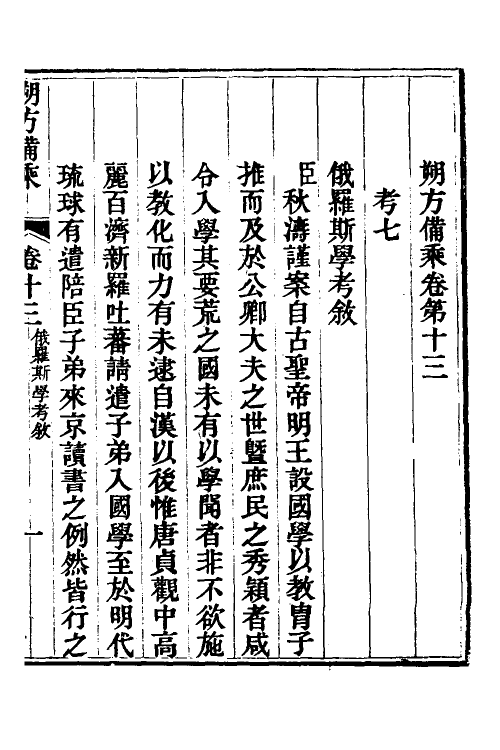 朔方備乘卷第十三
考七
俄羅斯學考敘
臣秋濤謹案自古聖帝明王設國學以教胄子
推而及於公卿大夫之世曁庶民之秀穎者咸
令入學其要荒之國未有以學聞者非不欲施
以教化而力有未逮自漢以後惟唐貞觀中高
麗百濟新羅吐蕃請遣子弟入國學至於明代
琉球有遣陪臣子弟來京讀書之例然皆行之
朔方備乘 卷十三 俄羅斯學考敘 一